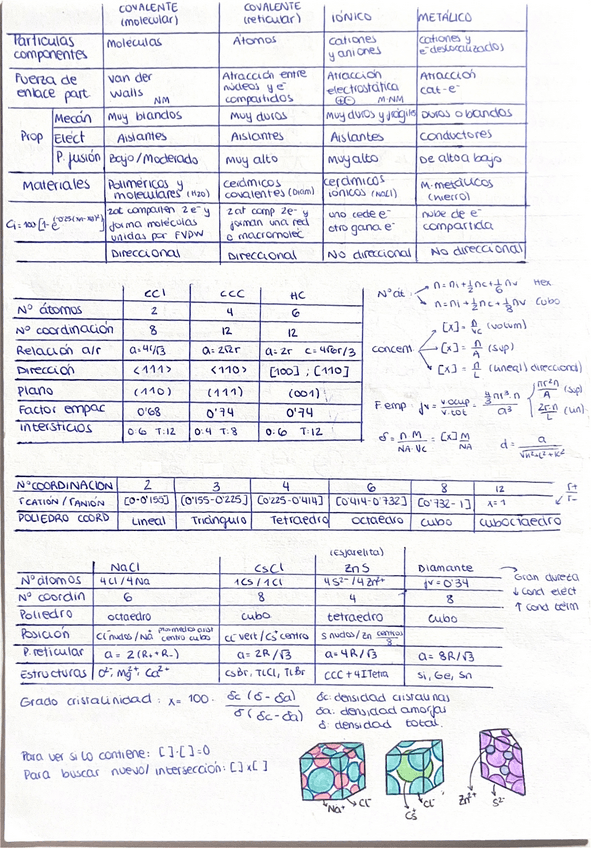 COVALENTE (molecular) COVALENTE (reticular) IÓNICO METÁLICO
Partículas componentes Moléculas Átomos cationes y aniones cationes y e⁻ deslocalizados
Fuerza de enlace part. van der Walls NM Atracción entre núcleos y e⁻ compartidos Atracción electrostática ⊕⊖ M-NM Atracción cat-e⁻
Prop Mecán Muy blandos Muy duros Muy duros y frágiles Duros o blandos
Eléct Aislantes Aislantes Aislantes conductores
P. fusión Bajo/Moderado Muy alto Muy alto De alto a bajo
Materiales Poliméricos y moleculares (H2O) cerámicos covalentes (Diam) cerámicos iónicos (NaCl) M. metálicos (hierro)
2at comparten 2e⁻ y forma moléculas unidas por FVDW 2at comp 2e⁻ y forman una red o macromoléc uno cede e⁻ otro gana e⁻ nube de e⁻ compartida
Direccional Direccional No direccional No direccional
CCI CCC HC
Nº átomos 2 4 6
Nº coordinación 8 12 12
Relación a/r a=4r/√3 a=2√2r a=2r c=4√6r/3
Dirección <111> <110> [100] ; [110]
Plano (110) (111) (001)
Factor empac 0'68 0'74 0'74
Intersticios O:6 T:12 O:4 T:8 O:6 T:12
Nº át. n=ni+½nc+⅙nv Hex
n=ni+½nc+⅛nv Cubo
concent [X]=n/Vc (volum)
[X]=n/A (sup)
[X]=n/L (lineal) direccional
F. emp. fv=v.ocup/v.tot = 4/3πr³·n/a³ πr²n/A (sup) 2r·n/L (lin)
δ=n·M/NA·Vc=[X]M/NA d=a/√h²+L²+K²
Nº COORDINACION 2 3 4 6 8 12
rCATIÓN/rANIÓN [0-0'155] [0'155-0'225] [0'225-0'414] [0'414-0'732] [0'732-1] x=1 r+ r-
POLIEDRO COORD Lineal Triángulo Tetraedro octaedro cubo cuboctaedro
NaCl CsCl (Esfarelita) ZnS Diamante
Nº átomos 4Cl/4Na 1Cs/1Cl 4S²⁻/4Zn²⁺ fv=0'34
Nº coordin 6 8 4 8
Poliedro octaedro cubo tetraedro cubo
Posición Cl⁻ nudos/Na⁺ centro cubo Cl⁻ vert/Cs⁺ centro S nudos/Zn centros 8
P. reticular a=2(R₊+R₋) a=2R/√3 a=4R/√3 a=8R/√3
Estructuras O²⁻, Mg²⁺, Ca²⁺ CsBr, TlCl, TlBr CCC + 4ITetra Si, Ge, Sn
Gran dureza
↓ cond eléct
↑ cond térm
Grado cristalinidad: x=100· δc(δ-δa)/δ(δc-δa)
δc: densidad cristalina
δa: densidad amorfa
δ: densidad total.
Para ver si lo contiene: [ ]·[ ]=0
Para buscar nuevo/ intersección: [ ]x[ ]
Na⁺ Cl⁻ Cs⁺ Cl⁻ Zn²⁺ S²⁻